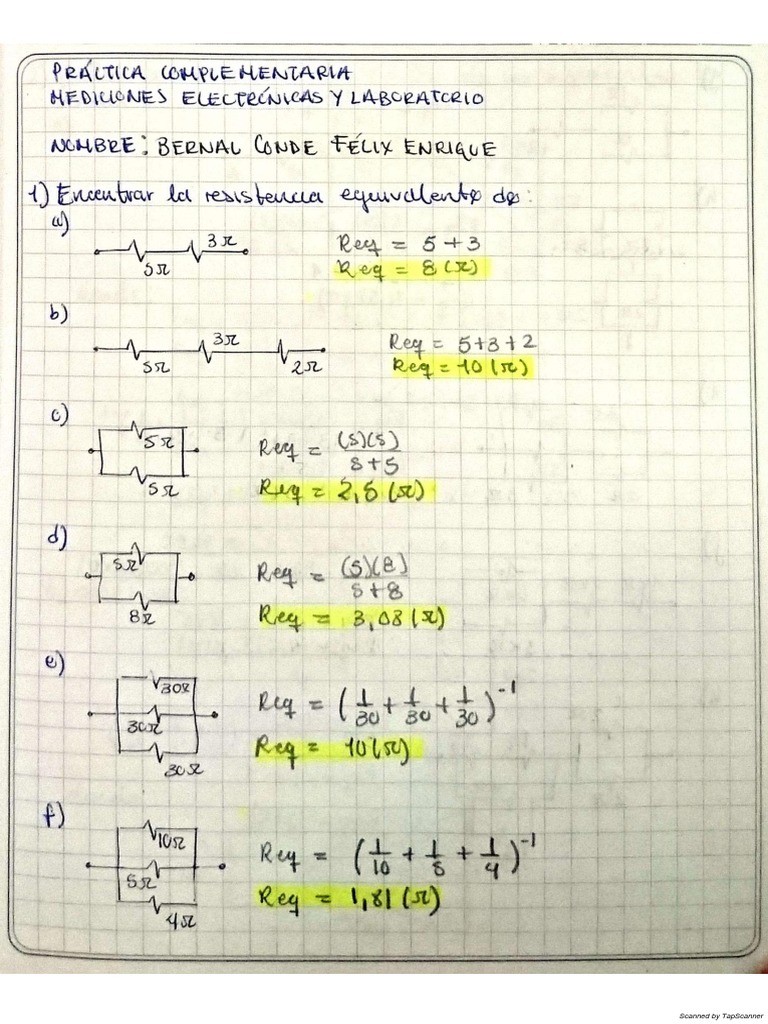 PRÁCTICA COMPLEMENTARIA
MEDICIONES ELECTRÓNICAS Y LABORATORIO
NOMBRE: BERNAL CONDE FÉLIX ENRIQUE
1) Encontrar la resistencia equivalente de:
a)
5Ω 3Ω
Req = 5 + 3
Req = 8 (Ω)
b)
5Ω 3Ω 2Ω
Req = 5+3+2
Req = 10 (Ω)
c)
5Ω
5Ω
Req = (5)(5) / 5+5
Req = 2,5 (Ω)
d)
5Ω
8Ω
Req = (5)(8) / 5+8
Req = 3,08 (Ω)
e)
30Ω
30Ω
30Ω
Req = (1/30 + 1/30 + 1/30)⁻¹
Req = 10 (Ω)
f)
10Ω
5Ω
4Ω
Req = (1/10 + 1/5 + 1/4)⁻¹
Req = 1,81 (Ω)
Scanned by TapScanner